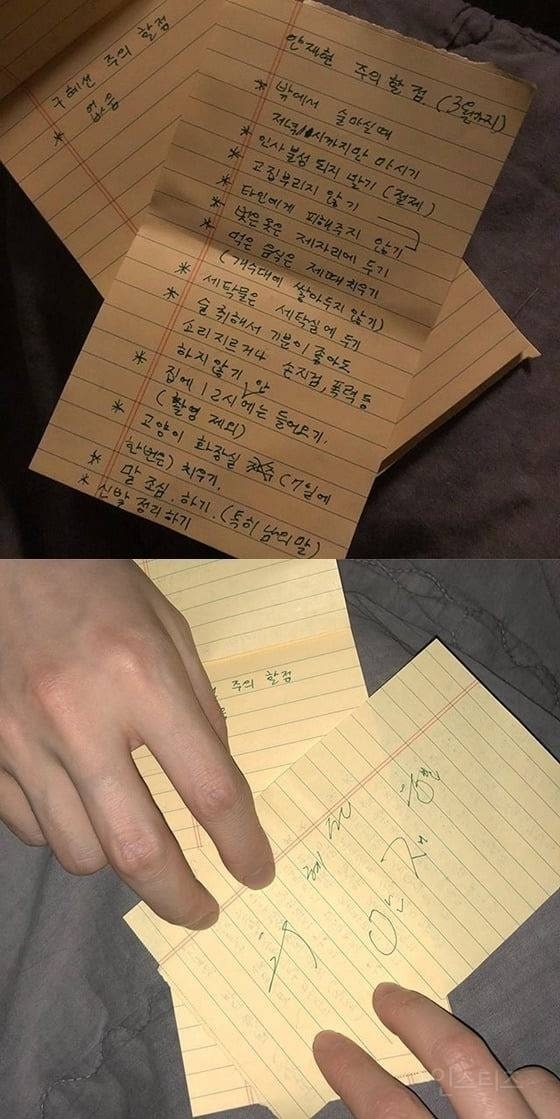 구혜선 주의 할점
* 없음
안재현 주의 할 점 (3월까지)
* 밖에서 술마실때
저녁 시까지만 마시기
* 인사불성 되지 말기 (절제)
* 고집부리지 않기
* 타인에게 피해주지 않기
* 벗은옷은 제자리에 두기
* 먹은 음식은 제때치우기
(개수대에 쌓아두지 않기)
* 세탁물은 세탁실에 두기
* 술 취해서 기분이 좋아도
소리지르거나 손지검, 폭력 등
하지않기
* 집에 12시 안에는 들어오기.
(촬영 제외)
* 고양이 화장실 (7일에
한번은) 치우기.
* 말 조심. 하기. (특히 남의 말)
* 신발 정리하기
주의 할점
구 혜 선
안 재 현
인스티즈